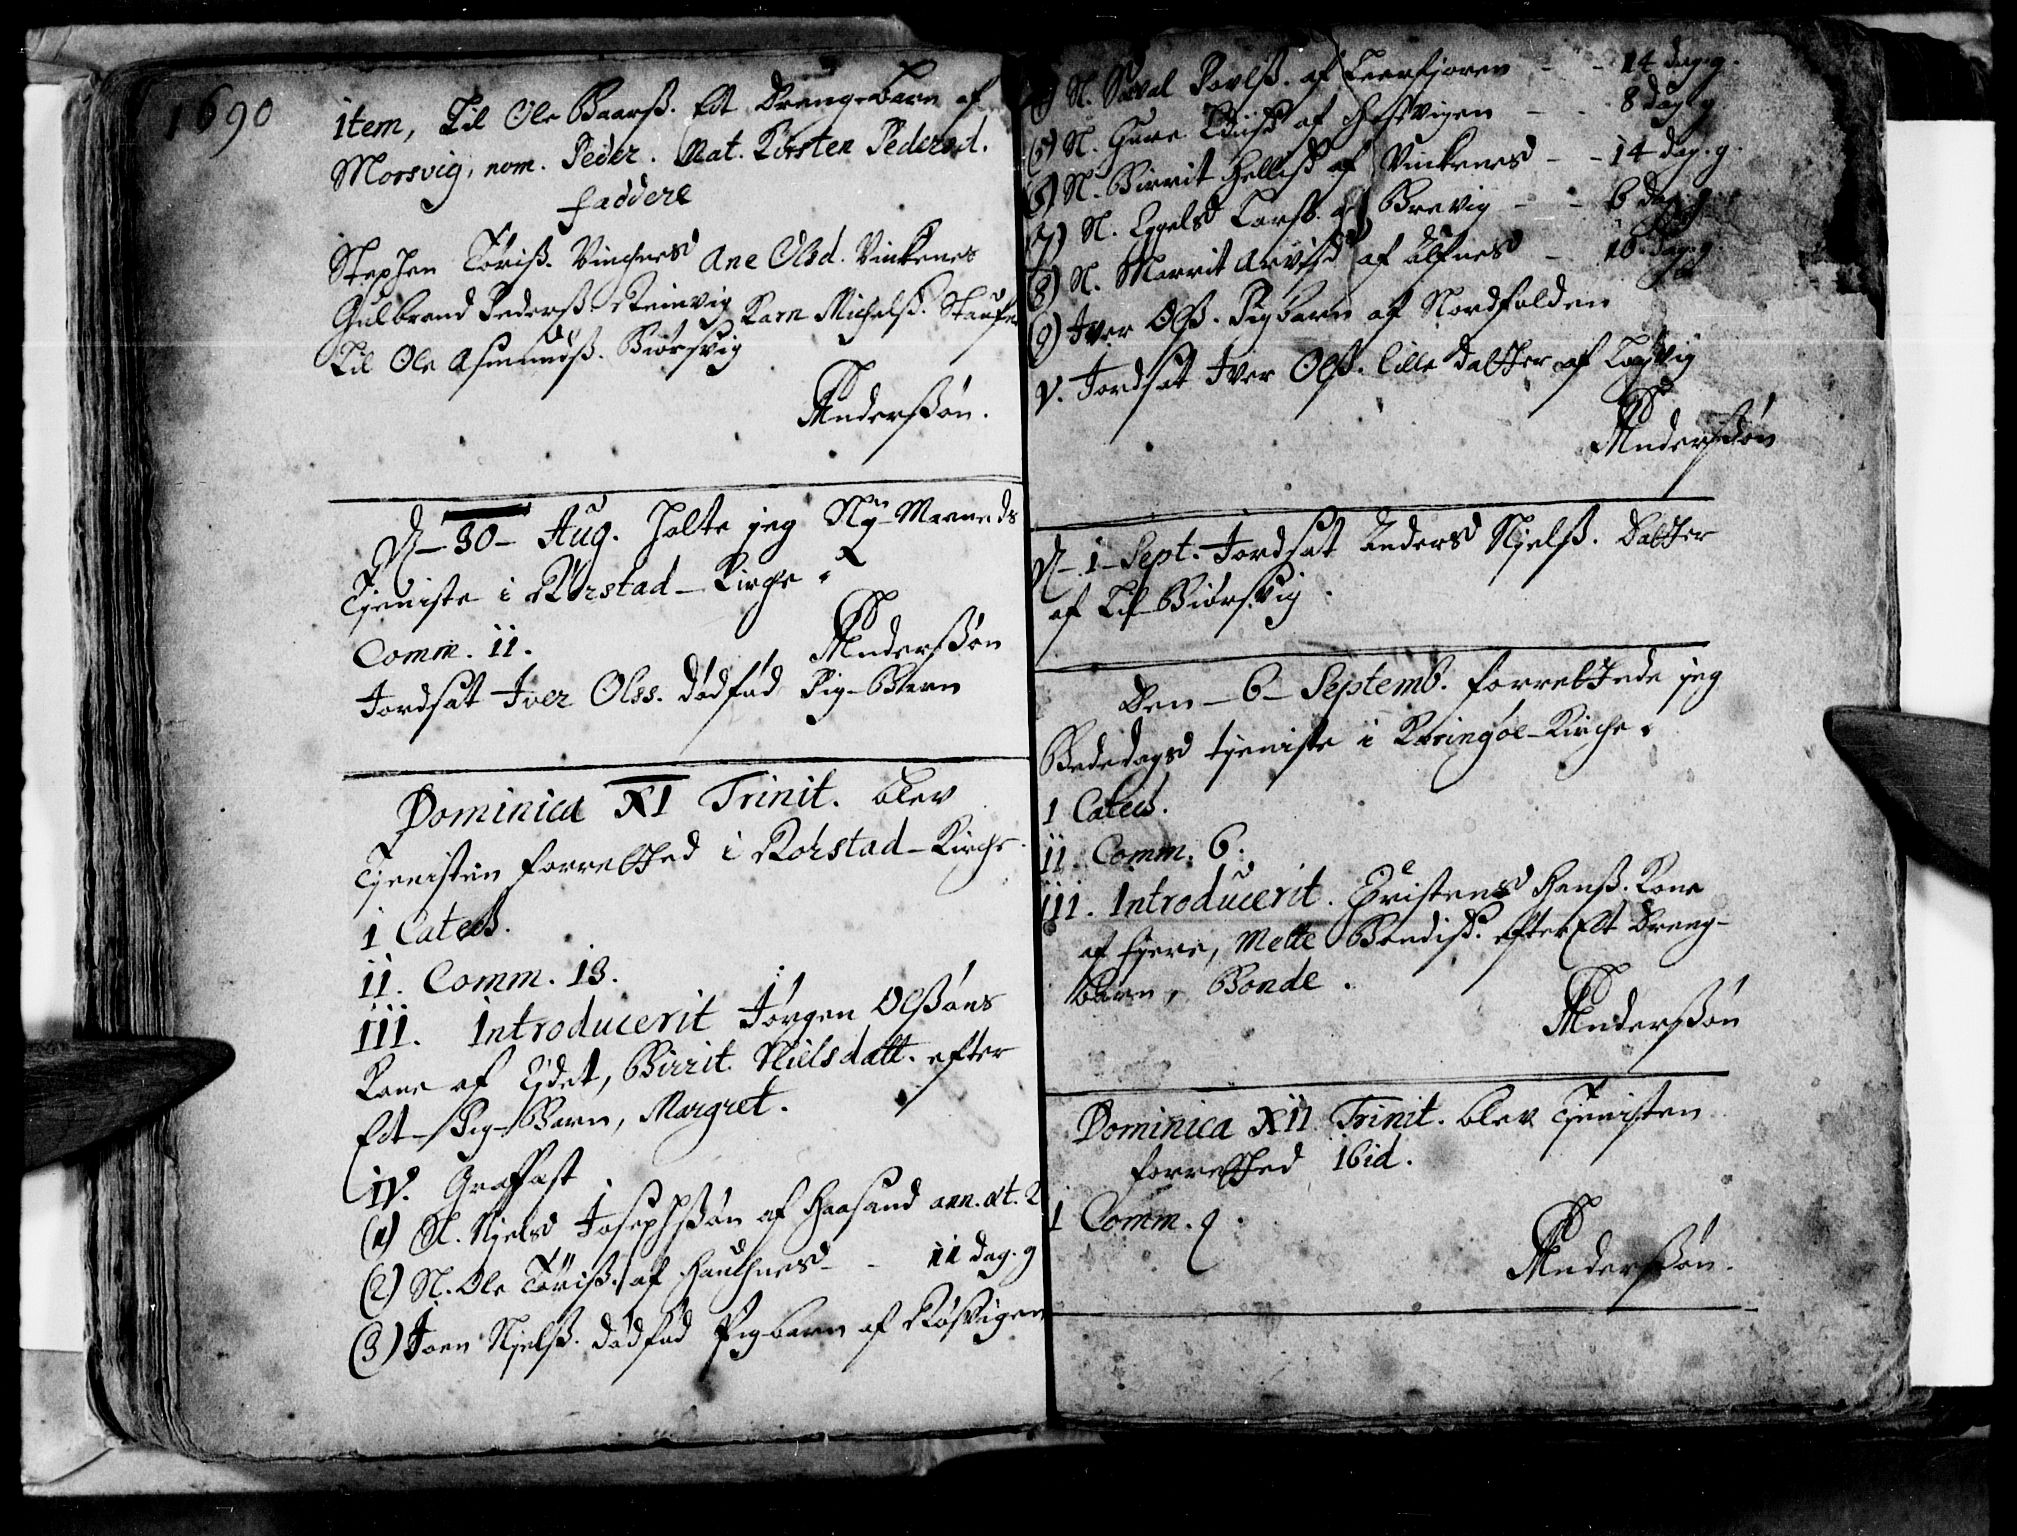 1690
Item, Til Ole Baarß. Et Drengebarn af
Morsvig, nom. Peder. Mat. Kirsten Pedersd.
faddere
Stephen Töriß. Vincknes Ane Olsd. Vinkenes
Gulbrand Pederß. Reinvig Karn Michelsd.
Til Ole Asmundß. Biörsvig
Anderßön.
D – 30 – Aug. Holte jeg Ny-Maaneds
Tjeniste i Rörstad – Kirche.
Comm. 11.
Anderßön
Jordsat Iver Olss. dödföd Pig-Barn
Dominica XI Trinit. blev
Tjenisten forretted i Rörstad – Kirche.
I Catech.
II. Comm. 13.
III. Introducerit Jörgen Olßöns
Kone af Eidet, Birrit Nielsdatt. efter
Et – Pig – Barn, Margret.
IV. Graffæst
(1) S. Njels Josephßön af Haasand ann. æt. 2
(2) N. Ole Töriß. af Hauchnes – – 11 dag. g
(3) Joen Njelß. dödföd Pigbarn af Rösvigen
(4) N. Povlß. af Leerfjoren – – 14 dag. g.
(5) N. Gure af – – 8 dag. g
(6) N. Birrit af Vinkenes – – 14 dag. g.
(7) N. Larß. af Brevig – – 6 dag. g
(8) N. Marrit af Alsnes – 10. dag. g.
(9) Iver Olß. Pigbarn af Nordfolden
V. Jordsat Iver Olß. lille datter af Lagsvig
Anderßön
D – 1 – Sept. Jordsat Anders Njelß. Datter
af Lil Biörsvig.
Den – 6 – Septemb. forrettede jeg
Bededags tjeniste i Kæringöe – Kirche.
I Catech.
II. Comm. 6.
III. Introducerit. Christens Hanß. Kone
af fjere, Mette Bendisd. efter Et Dreng-
barn, Bonde.
Anderßön
Dominica XII Trinit. blev Tjenisten
forretted ibid.
I Comm. 9.
Anderßön.